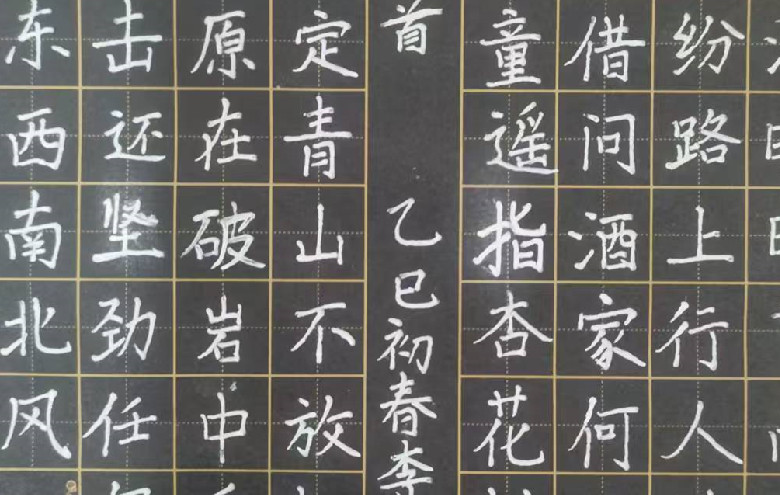 纷路上行人
借问酒家何
童遥指杏花
首 乙巳初春李
定青山不放
原在破岩中
击还坚劲任
东西南北风